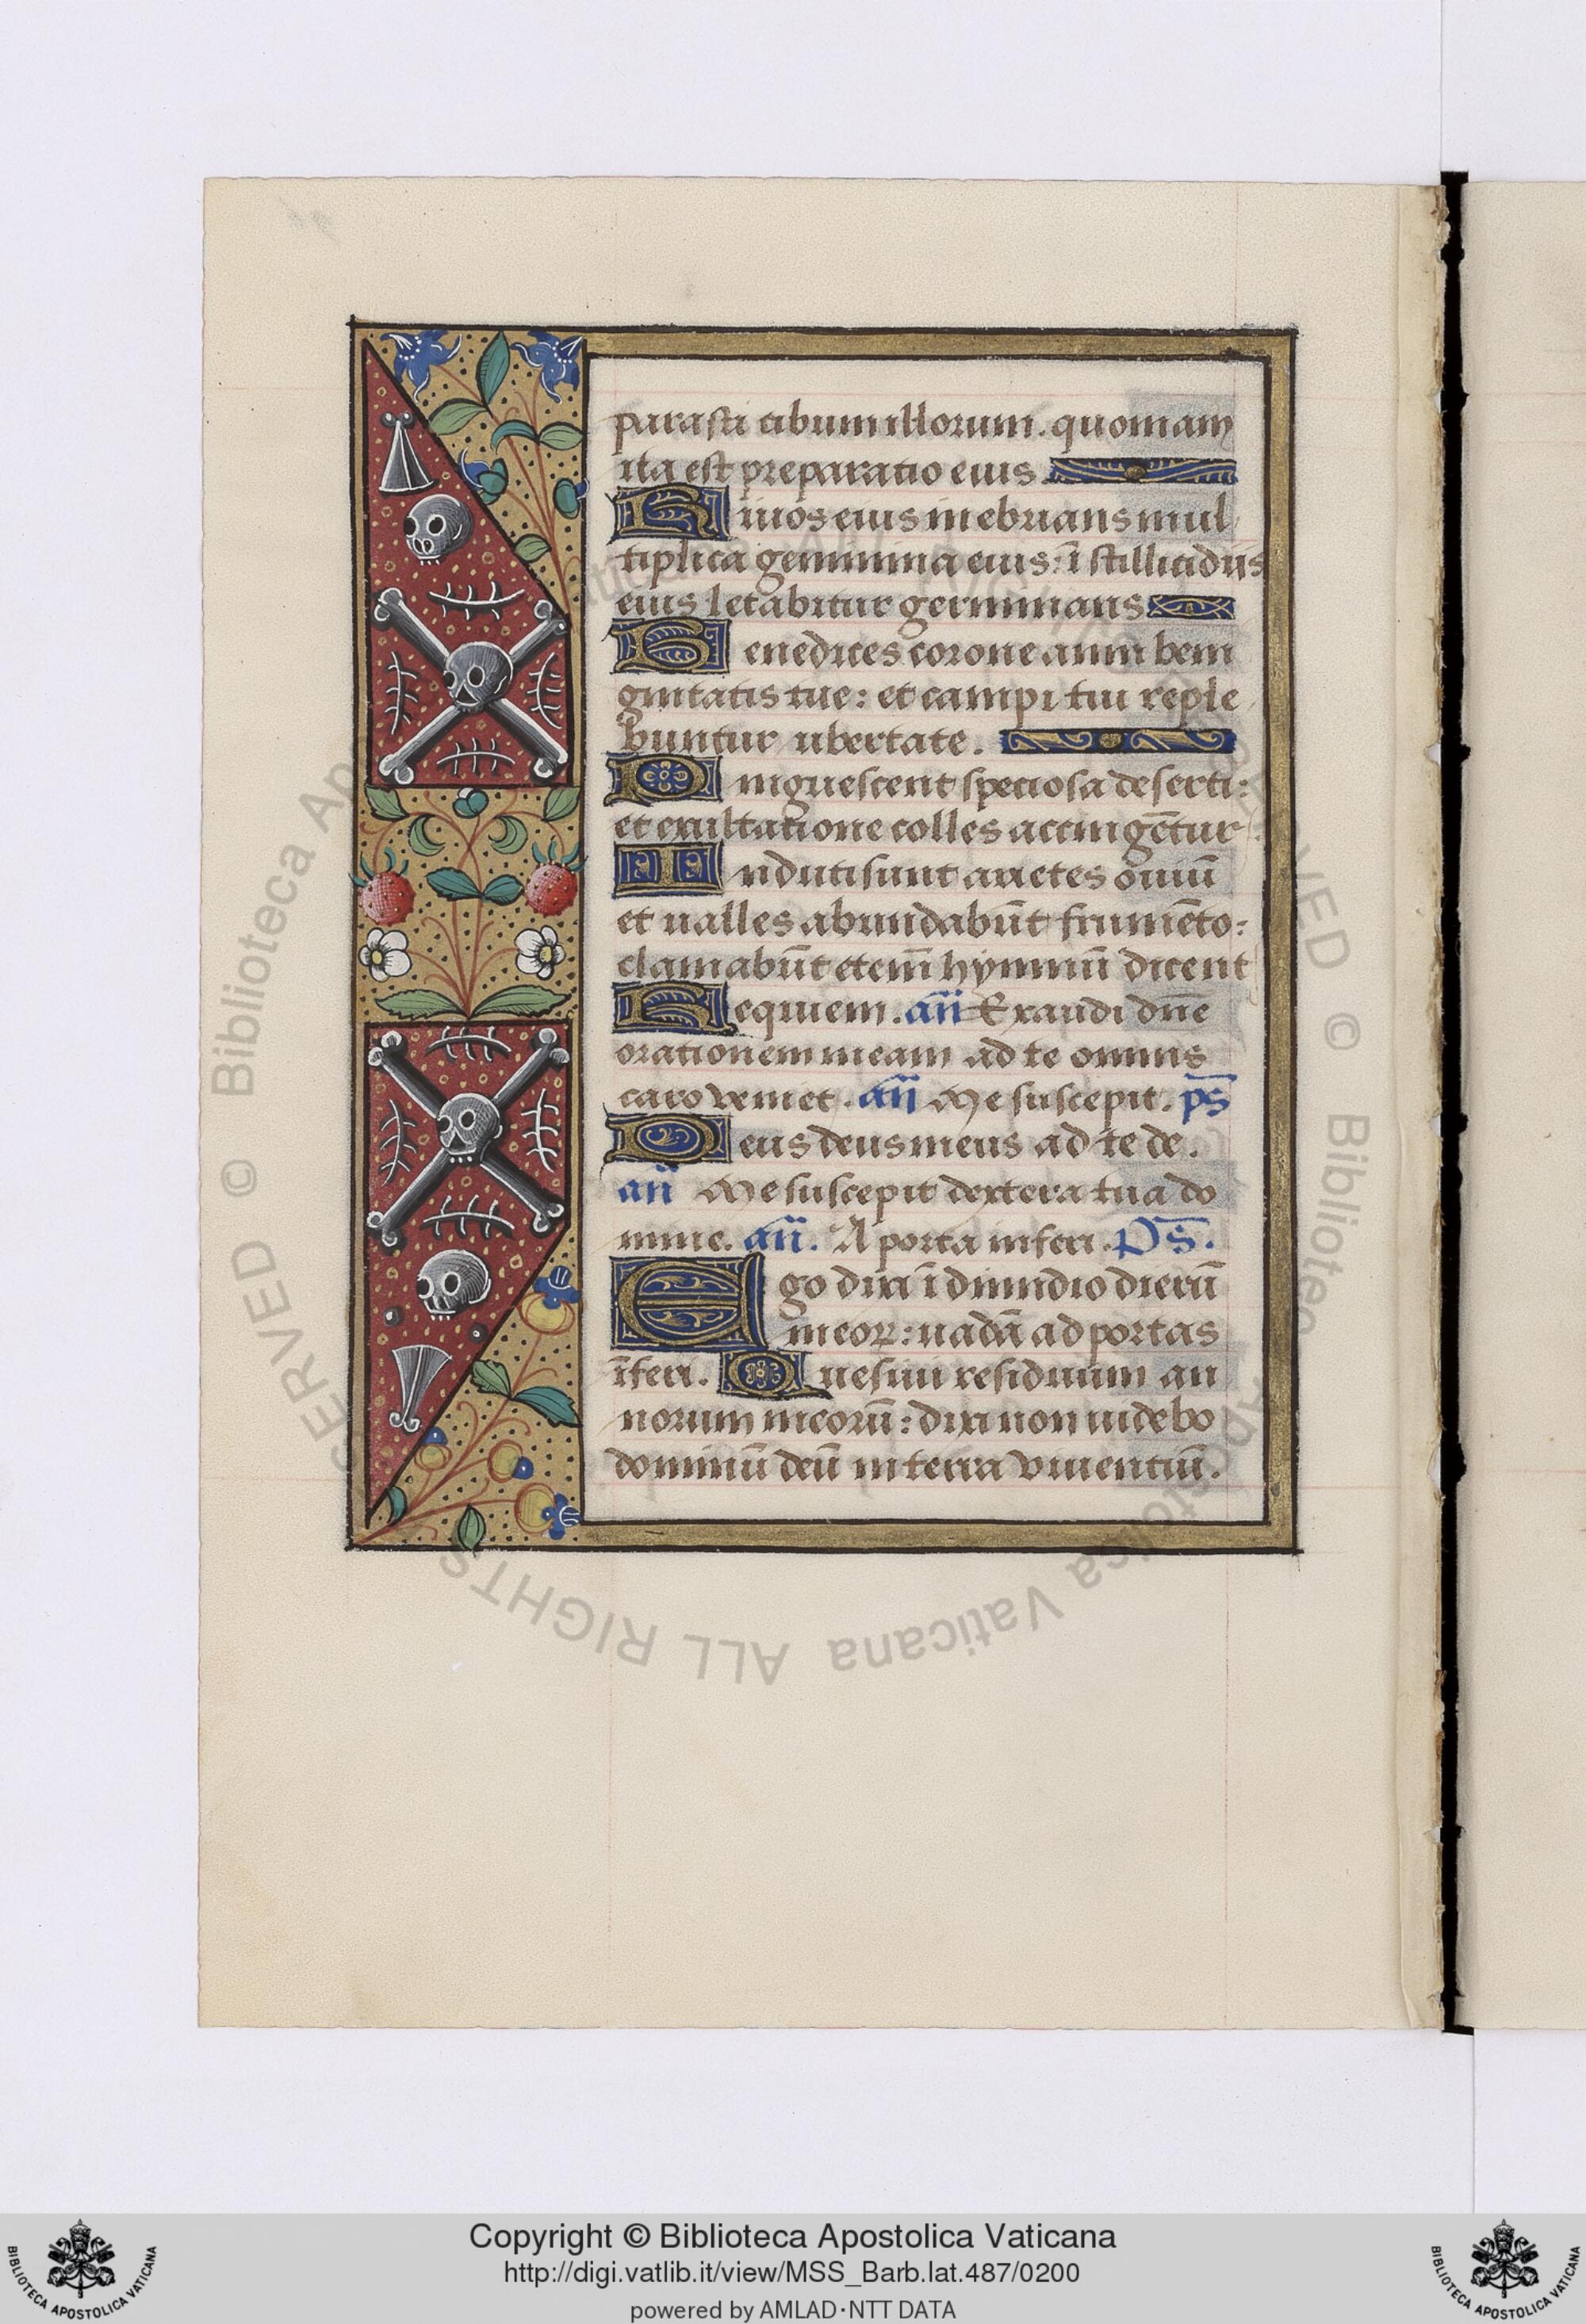 parasti cibum illorum. quoniam
ita est preparatio eius.
Riuos eius inebrians mul
tiplica genimina eius: ī stillicidiis
eius letabitur germinans
Benedices corone anni beni
gnitatis tue: et campi tui reple
buntur ubertate.
Pinguescent speciosa deserti:
et exultatione colles accingētur
Induti sunt arietes ouiū
et ualles abundabūt frumēto:
clamabūt etem̄ hymnū dicent
Requiem. an̄ Exaudi dn̄e
orationem meam ad te omnis
caro veniet. an̄ Me suscepit. ps̄
Deus deus meus ad te de.
an̄ Me suscepit dextera tua do
mine. an̄. A porta inferi. Ps̄.
Ego dixi ī dimidio dierū
meoꝝ: uadā ad portas
īferi. Quesiui residuum an
norum meorū: dixi non uidebo
dominū deū in terra viuentiū.
Biblioteca Apostolica Vaticana ALL RIGHTS RESERVED ©
Copyright © Biblioteca Apostolica Vaticana
http://digi.vatlib.it/view/MSS_Barb.lat.487/0200
powered by AMLAD·NTT DATA
BIBLIOTECA APOSTOLICA VATICANA
BIBLIOTECA APOSTOLICA VATICANA